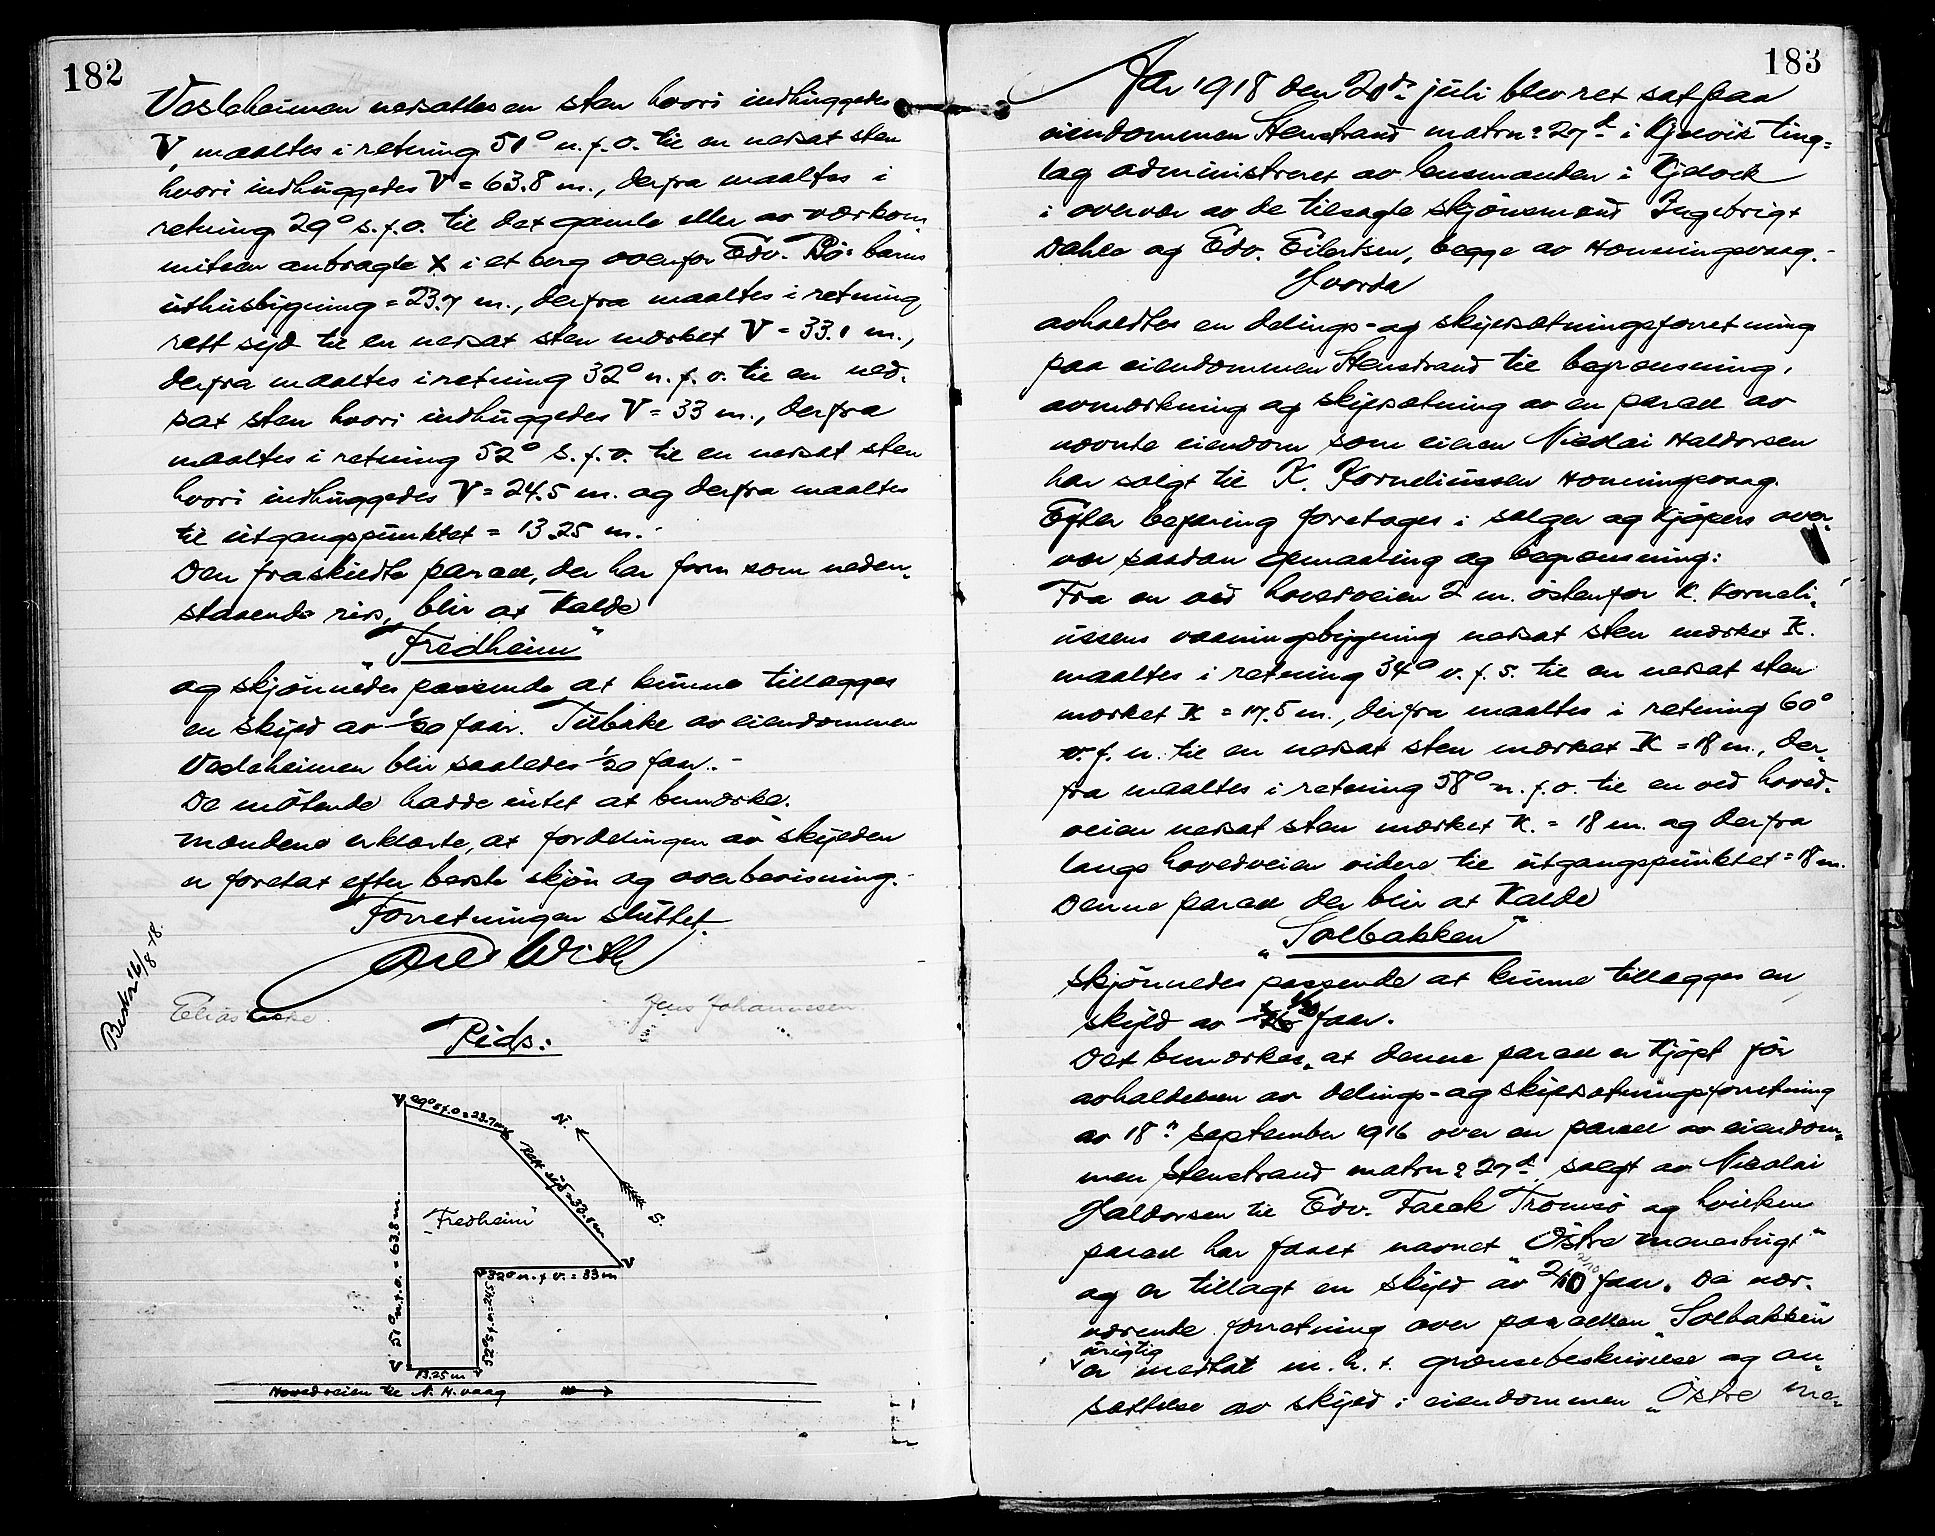 182
Vesleheimen nedsattes en sten hvori indhuggedes
V, maaltes i retning 51° n.f.o. til en nedsat sten
hvori indhuggedes V = 63.8 m., derfra maaltes i
retning 29° s.f.o. til det gamle eller av værkom
mitéen anbragte X i et berg ovenfor Edv. Bö's barns
uthusbygning = 23.7 m., derfra maaltes i retning
rett syd til en nedsat sten merket V = 33.1 m.,
derfra maaltes i retning 32° n.f.v. til en ned-
sat sten hvori indhuggedes V = 33 m., derfra
maaltes i retning 52° s.f.v. til en nedsat sten
hvori indhuggedes V = 24.5 m. og derfra maaltes
til utgangspunktet = 13.25 m.
Den fraskildte parcel, der har form som neden-
staaende rids, blir at kalde
"Fredheim"
og skjønnedes passende at kunne tillægges
en skyld av 1/20 faar. Tilbake av eiendommen
Vesleheimen blir saaledes 1/20 faar. -
De møtende hadde intet at bemerke.
Mændene erklærte, at fordelingen av skylden
er foretat efter bedste skjøn og overbevisning.
Forretningen sluttet.
Carl With
Beskr. 16/8-18.
Elias
Jens Johannesen
Rids:
V 29° s.f.o = 23.7 m X
N.
Rett syd = 33.1 m
S.
51° n.f.o. = 63.8 m.
"Fredheim"
V
V 32° n.f.v. = 33 m
52° s.f.v. = 24.5
V
13.25 m
V
Hovedveien til N. H.vaag
183
Aar 1918 den 20de juli blev ret sat paa
eiendommen Stenstrand matrn: 27d i Kjelvik ting-
lag administreret av lensmanden i Kjelvik
i overvær av de tilsagte skjönsmænd Ingebrigt
Dahle og Edv. Eilertsen, begge av Honningsvaag. -
Hvorda
avholdtes en delings- og skyldsætningsforretning
paa eiendommen Stenstrand til begrænsning,
avmerkning og skyldsætning av en parcel av
nævnte eiendom som eieren Nicolai Haldorsen
har solgt til K. Korneliussen Honningsvaag.
Efter befaring foretages i sælger og kjøpers over-
vær saadan opmaaling og begrænsning:
Fra en ved hovedveien 2 m. østenfor K. Korneli-
ussens vaaningsbygning nedsat sten merket K.
maaltes i retning 34° v.f.s. til en nedsat sten
merket K = 17.5 m., derfra maaltes i retning 60°
v.f.n. til en nedsat sten merket K = 18 m., der-
fra maaltes i retning 58° n.f.o. til en ved hoved-
veien nedsat sten merket K. = 18 m. og derfra
langs hovedveien videre til utgangspunktet = 18 m.
Denne parcel der blir at kalde
"Solbakken"
skjønnedes passende at kunne tillægges en
skyld av 1/20 faar.
Det bemerkes, at denne parcel er kjøpt før
avholdelsen av delings- og skyldsætningsforretning
av 18" september 1916 over en parcel av eiendom-
men Stenstrand matrn: 27d solgt av Nicolai
Haldorsen til Edv. Falck Tromsø og hvilken
parcel har faaet navnet "Östre Menesbugt"
og er tillagt en skyld av 2/10 faar. Da nær-
værende forretning over parcellen "Solbakken"
urigtig
er medtat m. h. t. grænsebeskrivelse og an-
sættelse av skyld i eiendommen "Östre Me-